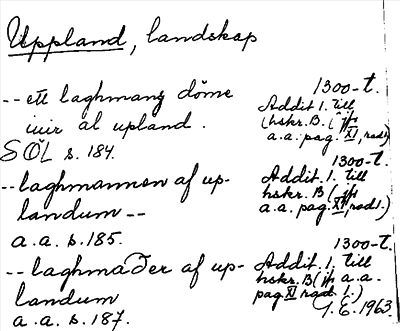 Uppland, landskap
1300-t.
-- ett laghmanz döme
iuir al upland.
Addit. 1. till
hskr. B. (jfr
a.a. pag. XI, rad 1.)
SÖL s. 184.
1300-t.
-- laghmannen af up-
landum --
Addit. 1. till
hskr. B (jfr
a.a. pag. XI, rad 1.)
a.a. s. 185.
1300-t.
-- laghmaðer af up-
landum
Addit. 1. till
hskr. B (jfr a.a.
pag. XI rad 1.)
a.a. s. 187.
G.E. 1963.